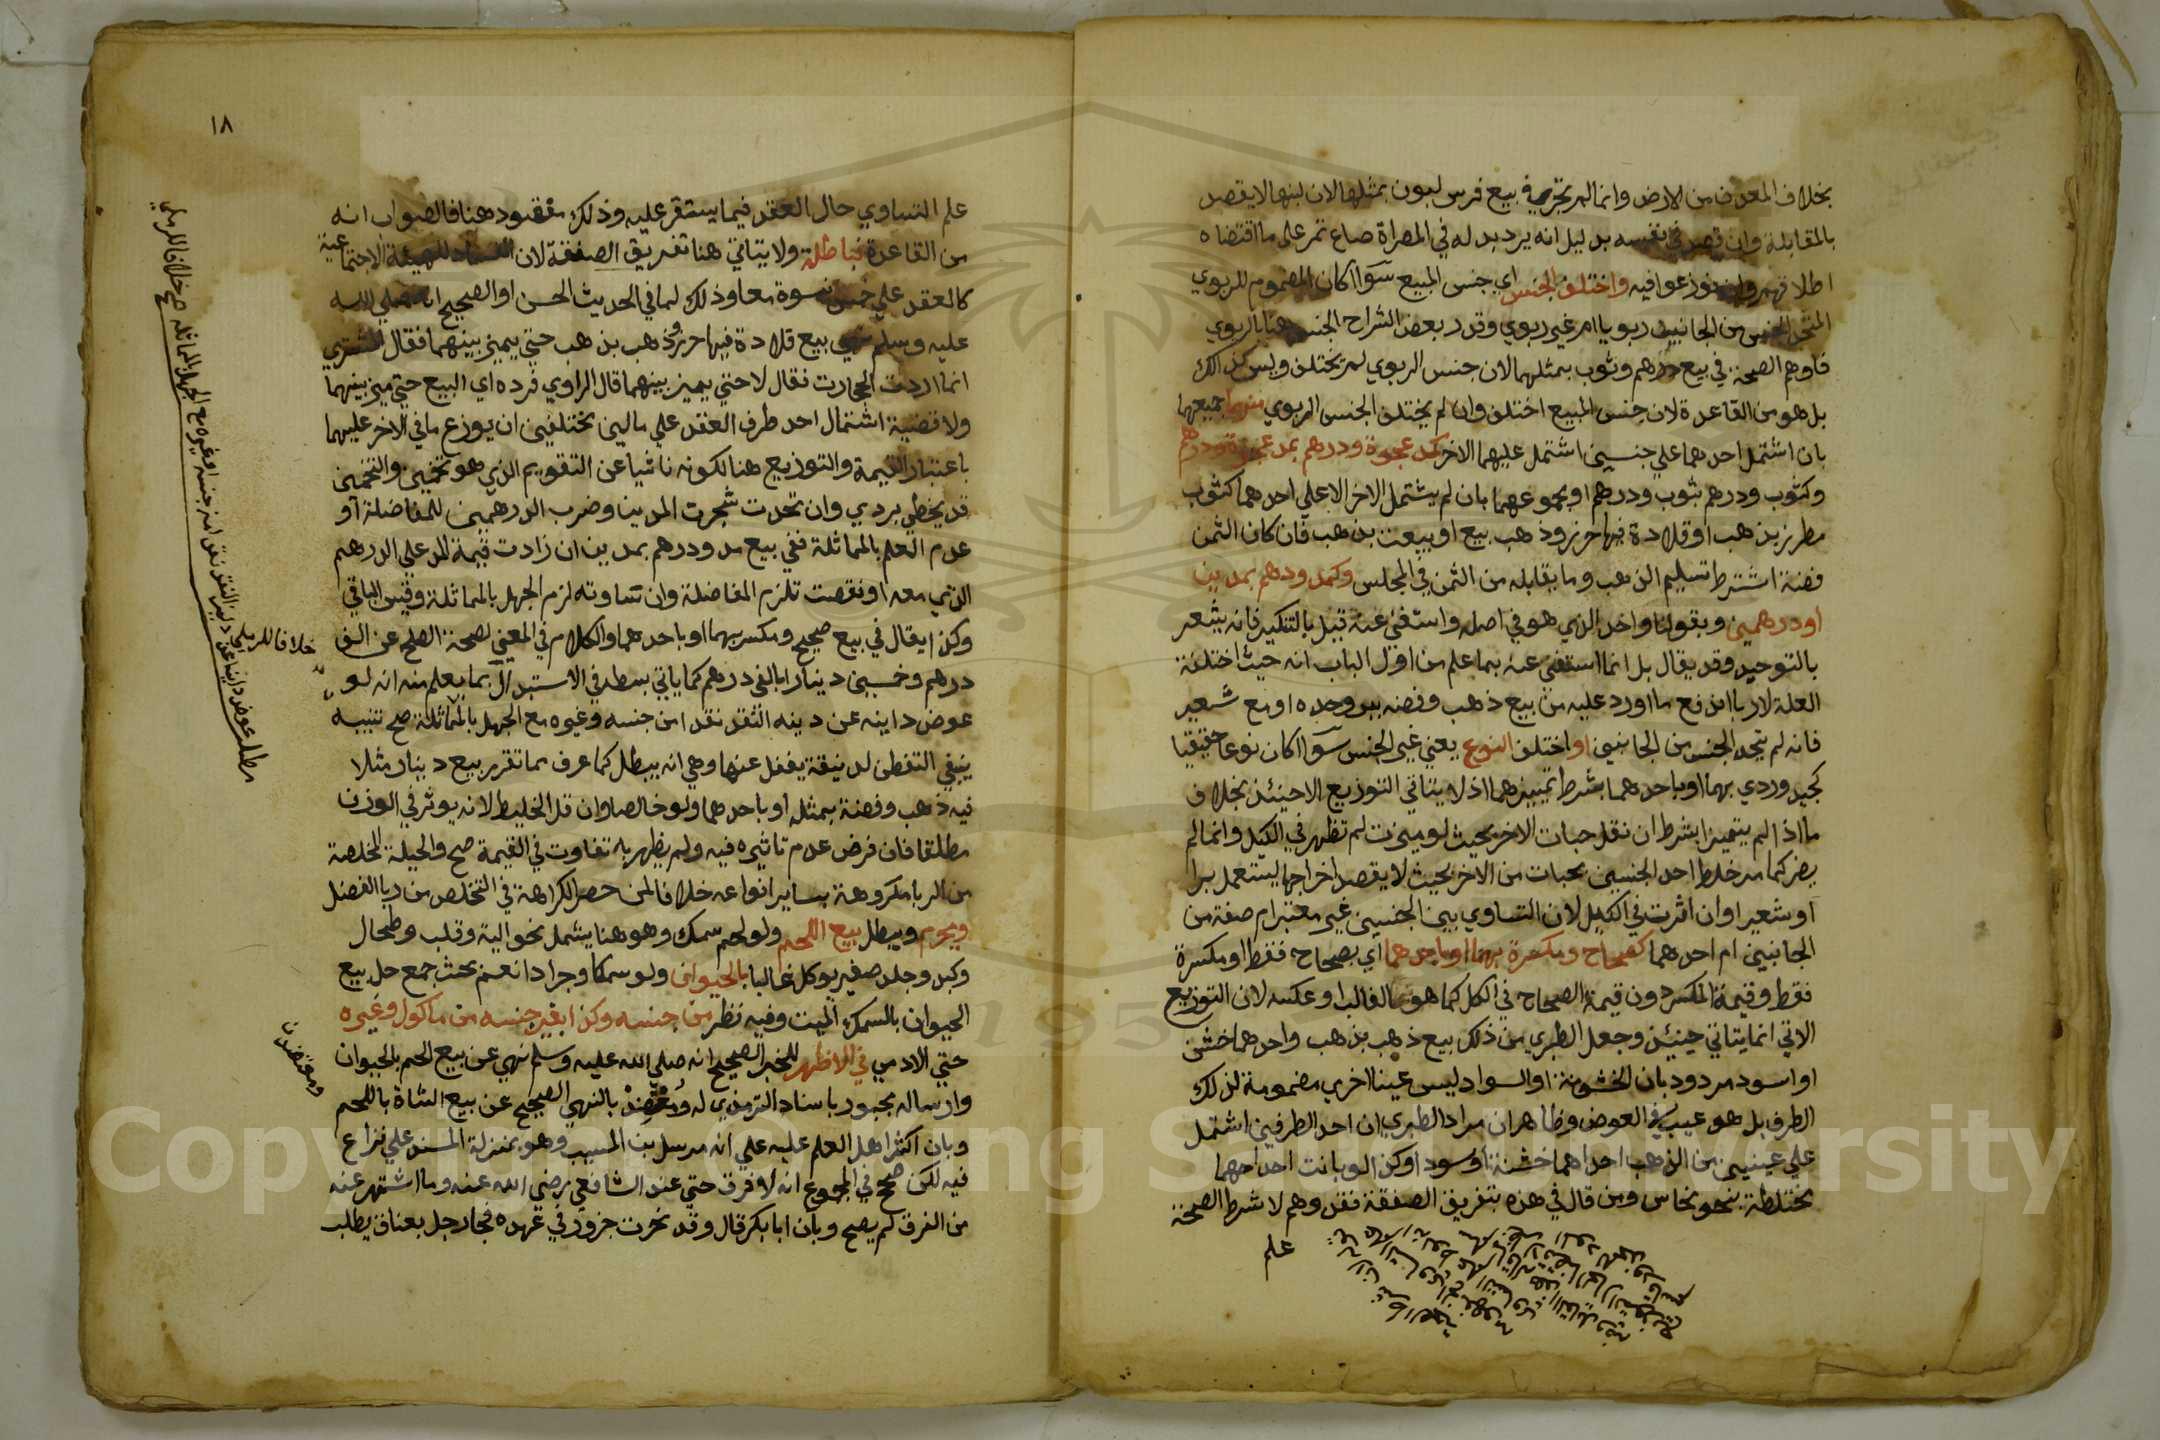 بخلاف المعدن من الارض وانما لم تجزي في بيع فرس لبون بمثلها لان لبنها لا يقصد
بالمقابلة وان قصد في نفسه بدليل انه يرد بدله في المصراة صاع تمر على ما اقتضاه
اطلاقهم وان نوزعوا فيه واختلف الجنس اي جنس المبيع سوا اكان المضموم للربوي
المتحد الجنس من الجانبين ربويا ام غير ربوي وقدر بعض الشراح الجنس هنا بالربوي
فاوهم الصحة في بيع درهم وثوب بمثلهما لان جنس الربوي لم يختلف وليس كذلك
بل هو من القاعدة لان جنس المبيع اختلف وان لم يختلف الجنس الربوي منهما جميعهما
بان اشتمل احدهما علي جنسين اشتمل عليهما الاخر كمد عجوة ودرهم بمد عجوة ودرهم
وكثوب ودرهم بثوب ودرهم او مجموعهما بان لم يشتمل الاخر الا علي احدهما كثوب
مطرز بذهب او قلادة فيها خرز وذهب بيع او بيعت بذهب فان كان الثمن
فضة اشترط تسليم الذهب وما يقابله من الثمن في المجلس وكمد ودرهم بمدين
او درهمين وبقولنا واحد الذي هو في اصله واستغني عنه قيل بالتنكير فانه يشعر
بالتوحيد وقد يقال بل انما استغني عنه بما علم من اول الباب انه حيث اختلفت
العلة لا ربا اندفع ما اورد عليه من بيع ذهب وفضة ببر وحده او مع شعير
فانه لم يتحد الجنس من الجانبين او اختلف النوع يعني غير الجنس سوا اكان نوعا حقيقيا
كجيد وردي بهما او باحدهما بشرط تميزهما اذ لا يتاتي التوزيع الا حينئذ بخلاف
ما اذا لم يتميزا بشرط ان تقل حبات الاخر بحيث لو ميزت لم تظهر في الكيل وانما لم
يضر كما مر خلط احد الجنسين بحبات من الاخر بحيث لا يقصد اخراجها ليستعمل برا
او شعيرا وان اثرت في الكيل لان التساوي بين الجنسين غير معتبر ام صفة من
الجانبين ام احدهما كصحاح ومكسرة بهما او باحدهما اي بصحاح فقط او مكسرة
فقط وقيمة المكسر دون قيمة الصحاح في الكل كما هو الغالب او عكسه لان التوزيع
الاتي انما يتاتي حينئذ وجعل الطبري من ذلك بيع ذهب بذهب واحدهما خشن
او اسود مردود بان الخشونة او السواد ليس عينا اخري مضمومة لذلك
الطرف بل هو عيب في العوض وظاهر ان مراد الطبري ان احد الطرفين اشتمل
علي عينين من الذهب احداهما خشنة او سودا وكذا لو بانت احداهما
مختلطة بنحو نحاس ومن قال في هذه بتفريق الصفقة فقد وهم لا شرط الصحة
علم
١٨
علم التساوي حال العقد فيما يستقر عليه وذلك مفقود هنا فالصواب انه
من القاعدة فباطلة ولا يتاتي هنا تفريق الصفقة لان الفساد للهيئة الاجتماعية
كالعقد علي خمس نسوة معا وذلك لما في الحديث الحسن او الصحيح انه صلي الله
عليه وسلم نهي بيع قلادة فيها خرز وذهب بذهب حتي يميز بينهما فقال المشتري
انما اردت الحجارت فقال لا حتي يميز بينهما قال الراوي فرده اي البيع حتي ميز بينهما
ولا قضية اشتمال احد طرفي العقد علي مالين مختلفين ان يوزع ما في الاخر عليهما
باعتبار القيمة والتوزيع هنا لكونه ناشيا عن التقويم الذي هو تخمين والتخمين
قد يخطي يردي وان تحدت شجرت المدين وضرب الدرهمين للمفاضلة او
عدم العلم بالمماثلة ففي بيع مد ودرهم بمدين ان زادت قيمة المد علي الدرهم
الذي معه او نقصت تلزم المفاضلة وان تساوته لزم الجهل بالمماثلة وقيس الباقي
وكذا يقال في بيع صحيح ومكسر بهما او باحدهما والكلام في المعين لصحة الصلح عن الف
درهم وخمسين دينارا بالفي درهم كما ياتي بسطه في الاستبدال بما يعلم منه انه لو
عوض داينه عن دينه النقد نقدا من جنسه وغيره مع الجهل بالمماثلة صح تنبيه
ينبغي التفطن لدقيقة يغفل عنها وهي انه يبطل كما عرف مما تقرر بيع دينار مثلا
فيه ذهب وفضة بمثله او باحدهما ولو خالصا وان قل الخليط لانه يوثر في الوزن
مطلقا فان فرض عدم تاثيره فيه ولم يظهر به تفاوت في القيمة صح والحيلة المخلصة
من الربا مكروهة بساير انواعه خلافا لمن حصر الكراهة في التخلص من ربا الفضل
ويحرم ويبطل بيع اللحم ولو لحم سمك وهو هنا يشمل نحو الية وقلب وطحال
وكبد وجلد صغير يوكل غالبا بالحيوان ولو سمكا وجرادا نعم بحث جمع حل بيع
الحيوان بالسمك الميت وفيه نظر من جنسه وكذا بغير جنسه من ماكول وغيره
حتي الادمي في الاظهر للخبر الصحيح انه صلي الله عليه وسلم نهي عن بيع اللحم بالحيوان
وارساله مجبور باسناد الترمذي له ومعتضد بالنهي الصحيح عن بيع الشاة باللحم
وبان اكثر اهل العلم عليه علي انه مرسل بن المسيب وهو بمنزلة المسند علي نزاع
فيه لكن صح في المجموع انه لا فرق حتي عند الشافعي رضي الله عنه وما اشتهر عنه
من الفرق لم يصح وبان ابا بكر قال وقد نحرت جزور في عهده فجا رجل بعناق يطلب
خلافا للرملي
مطلب عوض داينا عن دينه النقد نقدا من جنسه او غيره مع الجهل بالمماثله صح خلافا للرملي
ومعتضد